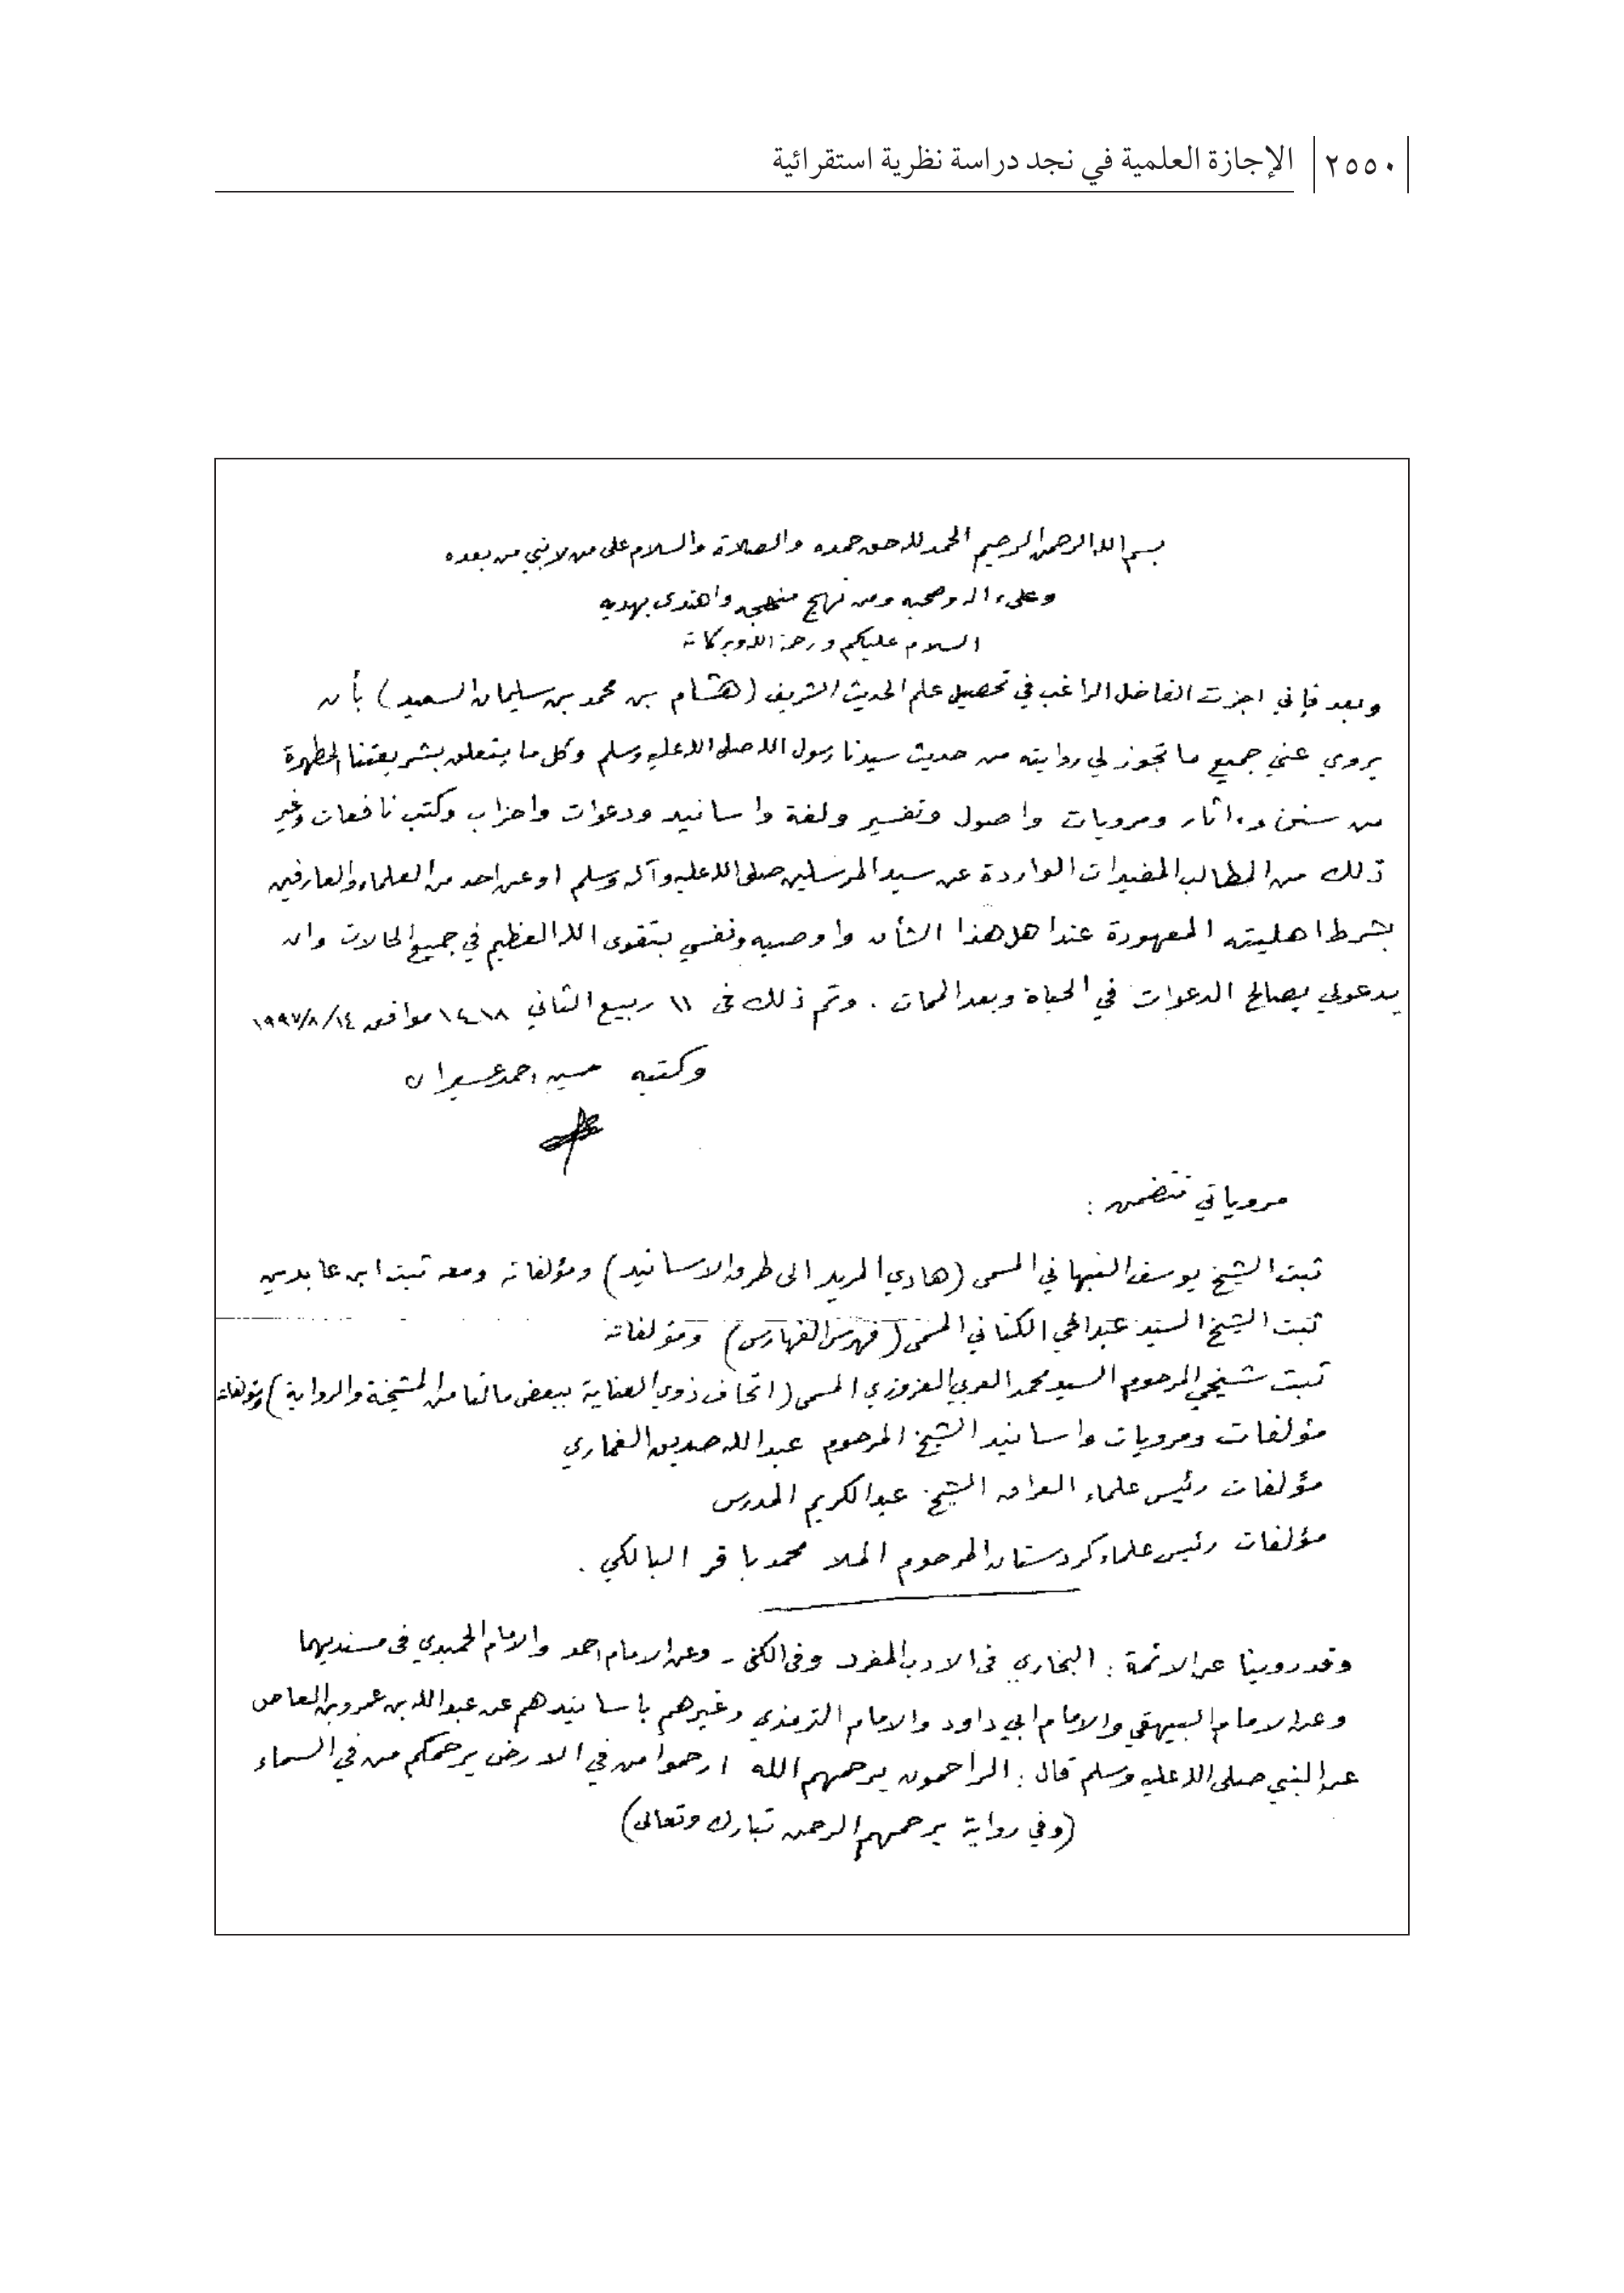 ٢٥٥٠ الإجازة العلمية في نجد دراسة نظرية استقرائية
بسم الله الرحمن الرحيم الحمد لله حق حمده والصلاة والسلام على من لا نبي من بعده
وعلى ءاله وصحبه ومن نهج منهجه واهتدى بهديه
السلام عليكم ورحمة الله وبركاته
وبعد فإني اجزت الفاضل الراغب في تحصيل علم الحديث الشريف (هشام بن محمد بن سليمان السعيد) بأن
يروي عني جميع ما تجوز لي روايته من حديث سيدنا رسول الله صلى الله عليه وسلم وكل ما يتعلق بشريعتنا المطهرة
من سنن وءاثار ومرويات واصول وتفسير ولغة واسانيد ودعوات واحزاب وكتب نافعات وغير
ذلك من المطالب المفيدات الواردة عن سيد المرسلين صلى الله عليه وآله وسلم او عن احد من العلماء والعارفين
بشرط اهليته المعهودة عند اهل هذا الشأن واوصيه ونفسي بتقوى الله العظيم في جميع الحالات وان
يدعولي بصالح الدعوات في الحياة وبعد الممات . وتم ذلك فى ١١ ربيع الثاني ١٤١٨ موافق ١٤/٨/١٩٩٧
وكتبه حسين احمد عسيران
مروياتي تتضمن :
ثبت الشيخ يوسف النبهاني المسمى (هادي المريد الى طرق الاسانيد) ومؤلفاته ومعه ثبت ابن عابدين
ثبت الشيخ السيد عبدالحي الكتاني المسمى (فهرس الفهارس) ومؤلفاته
ثبت شيخي المرحوم السيد محمد العربي العزوزي المسمى (اتحاف ذوي العناية ببعض مالنا من المشيخة والرواية) ومؤلفاته
مؤلفات ومرويات واسانيد الشيخ المرحوم عبدالله صديق الغماري
مؤلفات رئيس علماء العراق الشيخ عبدالكريم المدرس
مؤلفات رئيس علماء كردستان المرحوم الملا محمد باقر البالكي .
وقد روينا عن الائمة : البخاري فى الادب المفرد وفى الكنى - وعن الامام احمد والامام الحميدي فى مسنديهما
وعن الامام البيهقي والامام ابي داود والامام الترمذي وغيرهم باسانيدهم عن عبدالله بن عمرو بن العاص
عن النبي صلى الله عليه وسلم قال : الراحمون يرحمهم الله ارحموا من في الارض يرحمكم من في السماء
(وفي رواية يرحمهم الرحمن تبارك وتعالى)